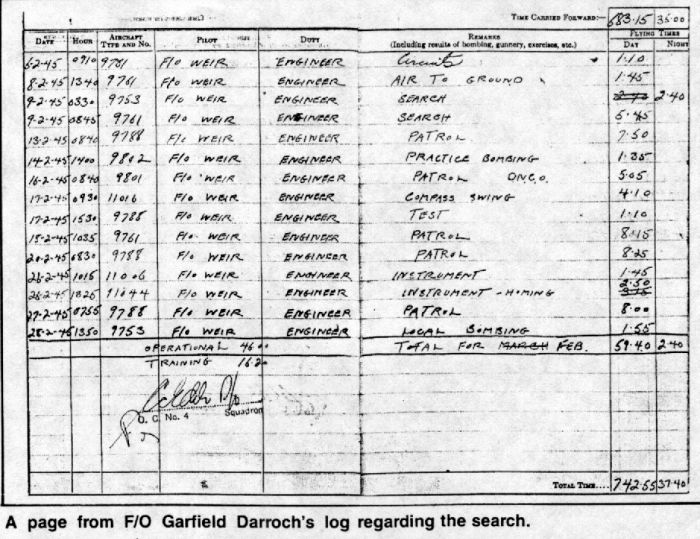 TIME CARRIED FORWARD:— 683.15 35.00
DATE HOUR AIRCRAFT TYPE AND NO. PILOT DUTY REMARKS (Including results of bombing, gunnery, exercises, etc.) FLYING TIMES DAY NIGHT
6-2-45 0910 9761 F/O WEIR ENGINEER Circuits 1.10
8-2-45 1340 9761 F/O WEIR ENGINEER AIR TO GROUND 1.45
9-2-45 0330 9753 F/O WEIR ENGINEER SEARCH 2.40
9-2-45 0845 9761 F/O WEIR ENGINEER SEARCH 5.45
13-2-45 0840 9788 F/O WEIR ENGINEER PATROL 7.50
14-2-45 1400 9802 F/O WEIR ENGINEER PRACTICE BOMBING 1.35
16-2-45 0840 9801 F/O WEIR ENGINEER PATROL D.N.C.O. 5.05
17-2-45 0930 11016 F/O WEIR ENGINEER COMPASS SWING 4.10
17-2-45 1530 9788 F/O WEIR ENGINEER TEST 1.10
18-2-45 1035 9761 F/O WEIR ENGINEER PATROL 8.15
20-2-45 0830 9788 F/O WEIR ENGINEER PATROL 8.25
26-2-45 1015 11006 F/O WEIR ENGINEER INSTRUMENT 1.45
26-2-45 1325 11044 F/O WEIR ENGINEER INSTRUMENT - HOMING 2.50
27-2-45 0755 9788 F/O WEIR ENGINEER PATROL 8.00
28-2-45 1350 9753 F/O WEIR ENGINEER LOCAL BOMBING 1.55
OPERATIONAL 46.00 TOTAL FOR MARCH FEB. 59.40 2.40
TRAINING 16.20
O. C. No. 4 Squadron
TOTAL TIME.... 742.55 37.40
A page from F/O Garfield Darroch's log regarding the search.